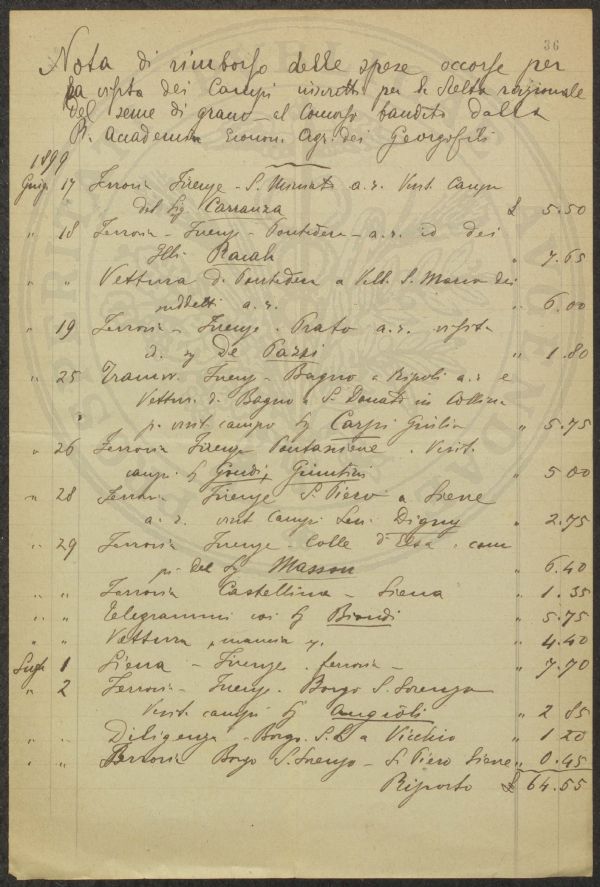 36
Nota di rimborso delle spese occorse per
la visita dei Campi inscritti per la Scelta razionale
del seme di grano al Concorso bandito dalla
R. Accademia Econom. Agr. dei Georgofili
1899
Giug. 17 Ferrovia Firenze - S. Miniato a. r. Visit. Campi
del Sig Carranza £ 5.50
" 18 Ferrovia - Firenze - Pontedera - a. r. id dei
" 7.65
" " Vettura da Pontedera a Vill. S. Marco dei
suddetti a. r. " 6.00
" 19 Ferrovia - Firenze - Prato a. r. visita
d. sig De Pazzi " 1.80
" 25 Tramw. Firenze - Bagno a Ripoli a. r e
Vettura da Bagno a S. Donato in Collina
p. visit. campo Sig Carpi Giulio " 5.75
" 26 Ferrovia Firenze Pontassieve . Visit.
campi Sig Giuntini " 5 00
" 28 Ferrovia Firenze S. Piero a Sieve
a. r. visit Campi Digny " 2.75
" 29 Ferrovia Firenze - Colle d'Elsa . cam
pi del Sig Masson " 6.40
" " Ferrovia Castellina - Siena " 1.35
" " Telegrammi Sig Biondi " 5.75
" " Vettura , mancia " 4.40
Lugl. 1 Siena - Firenze . ferrovia - " 7.70
" 2 Ferrovia - Firenze . Borgo S. Lorenzo
Visit. campi Sig Angioli " 2 85
" " Diligenza - Borgo S. L. a Vicchio " 1 20
" " Ferrovia Borgo S. Lorenzo - S. Piero Sieve " 0.45
Riporto £ 64.55